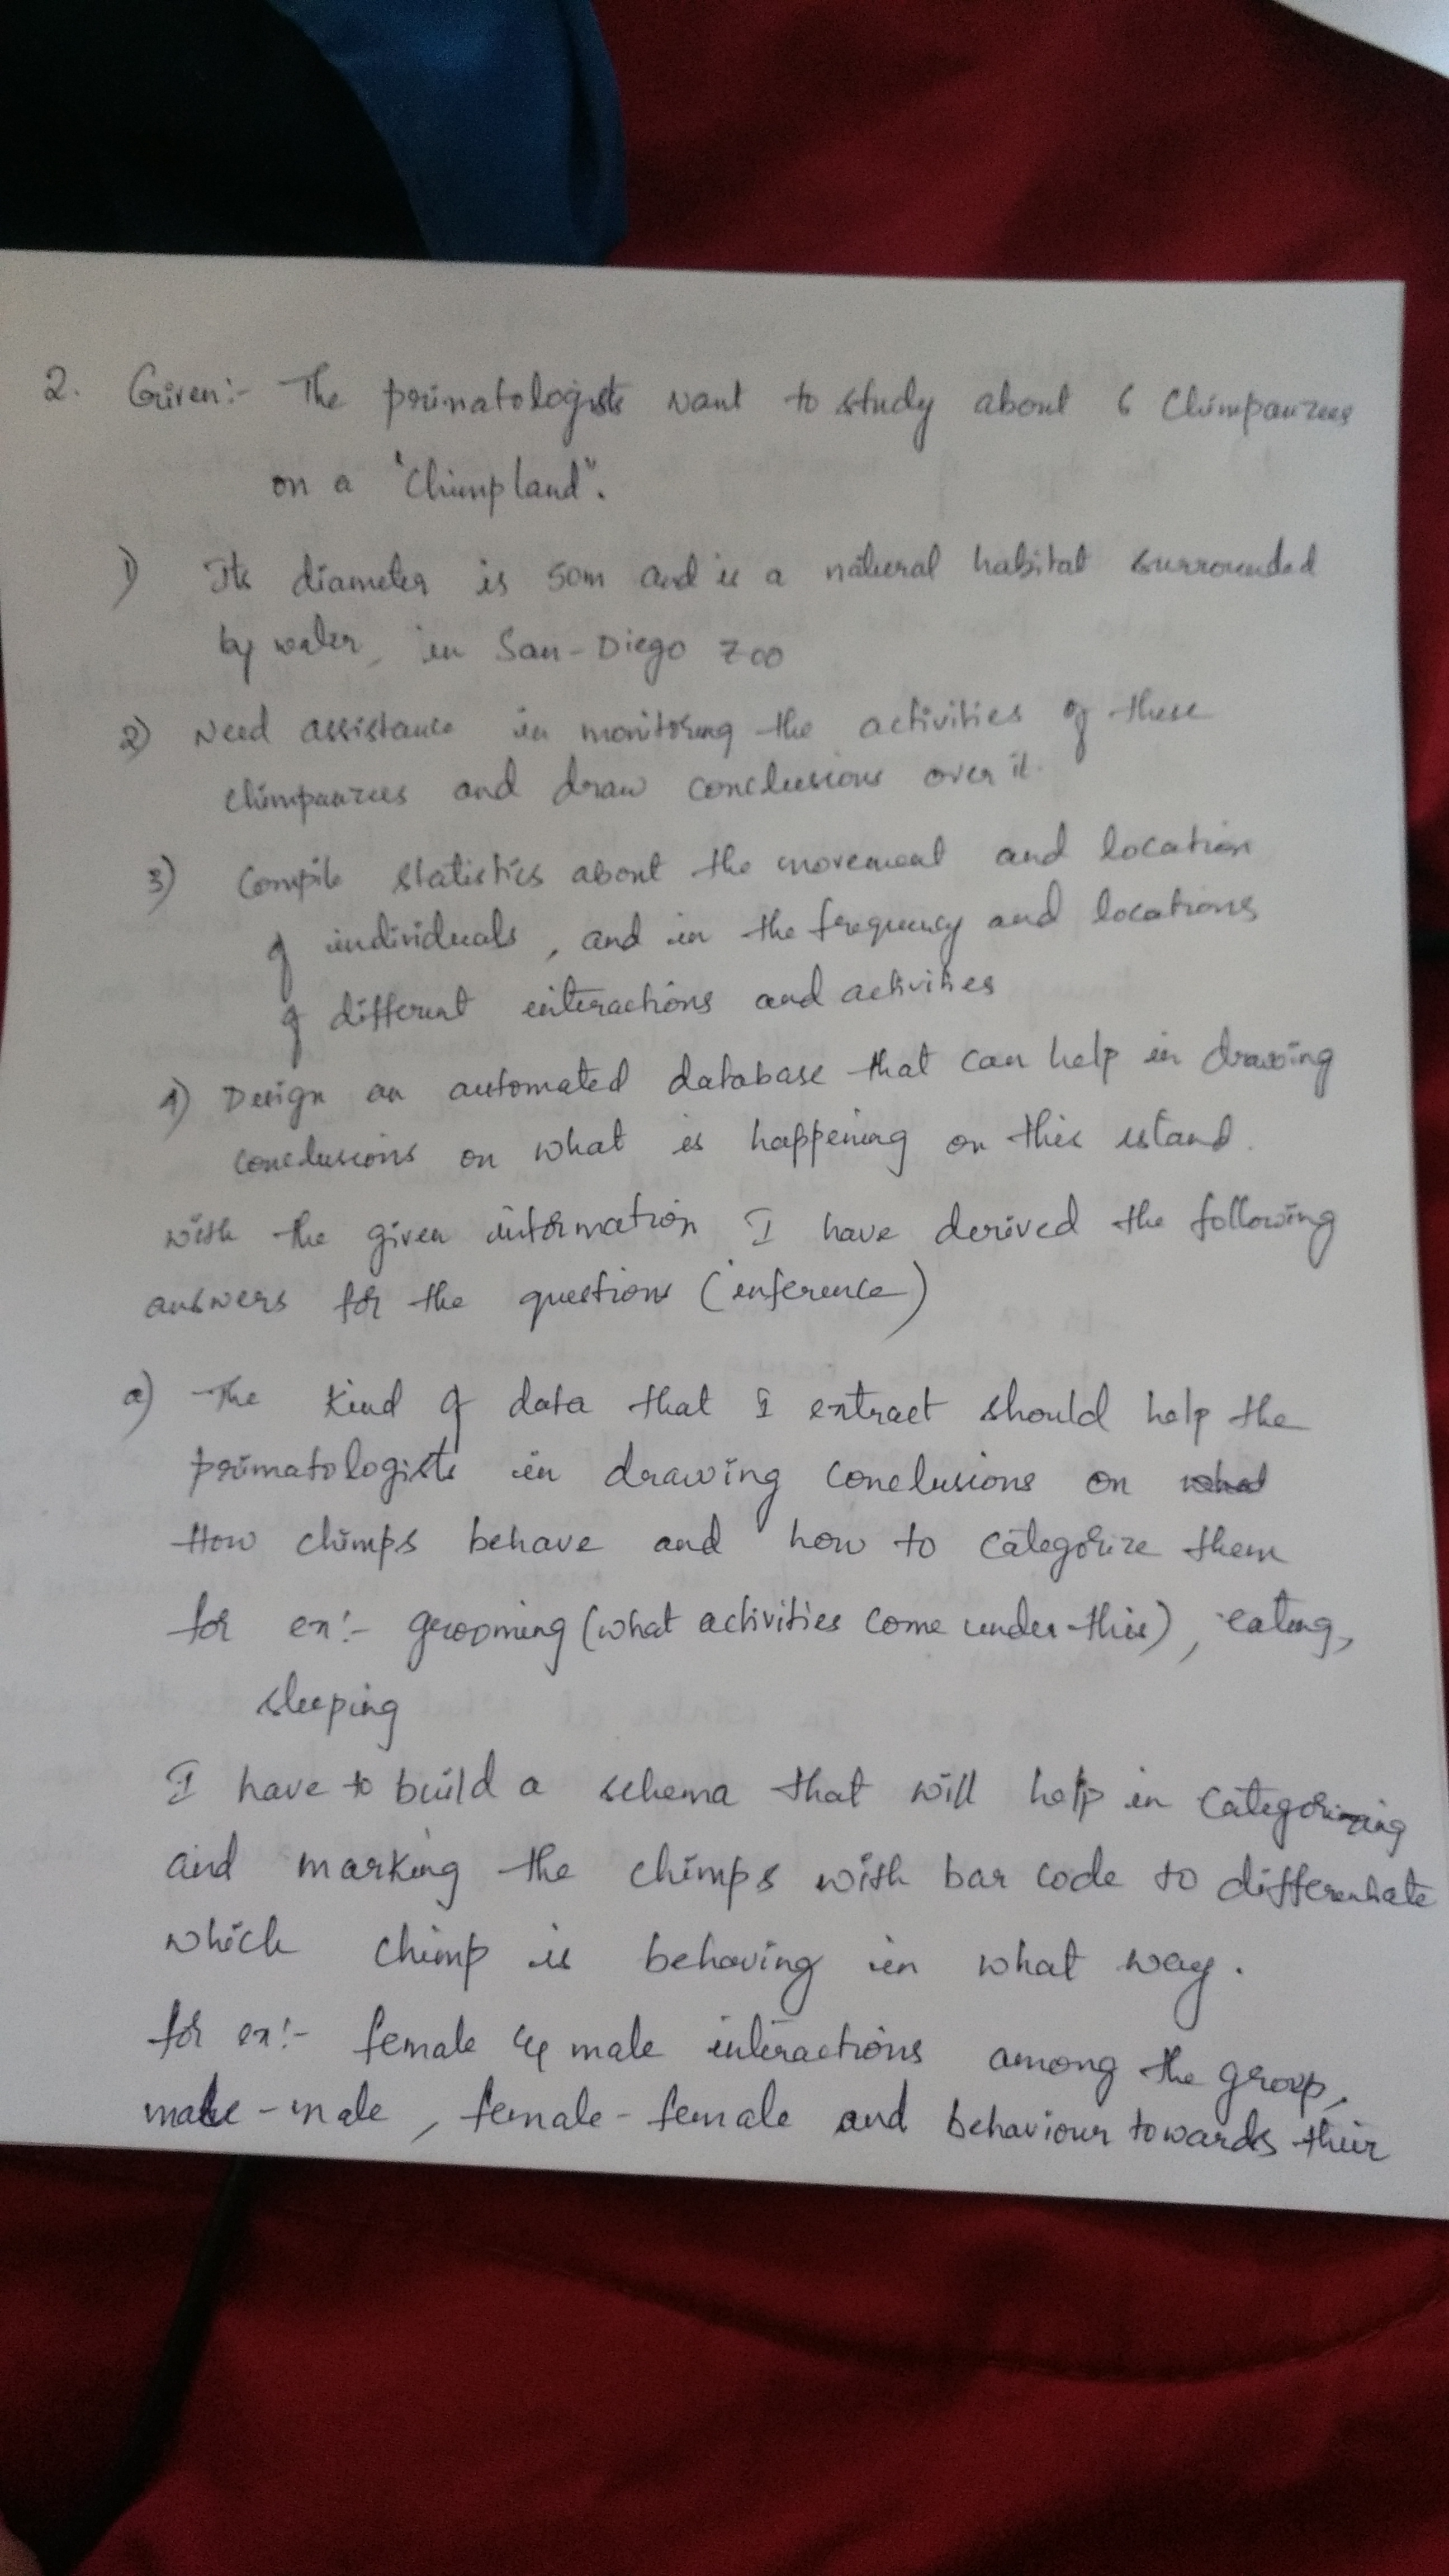 2. Given:- The primatologists want to study about 6 Chimpanzees
on a "Chimpland".
1) Its diameter is 50m and is a natural habitat surrounded
by water, in San-Diego zoo
2) Need assistance in monitoring the activities of these
chimpanzees and draw conclusions over it.
3) Compile statistics about the movement and location
of individuals, and in the frequency and locations
of different interactions and activities
4) Design an automated database that can help in drawing
conclusions on what is happening on this island.
with the given information I have derived the following
answers for the questions (inference)
a) The kind of data that I extract should help the
primatologists in drawing conclusions on
How chimps behave and how to categorize them
for ex:- grooming (what activities come under this), eating,
sleeping
I have to build a schema that will help in categorizing
and marking the chimps with bar code to differentiate
which chimp is behaving in what way.
for ex:- female & male interactions among the group,
male-male, female-female and behaviour towards their